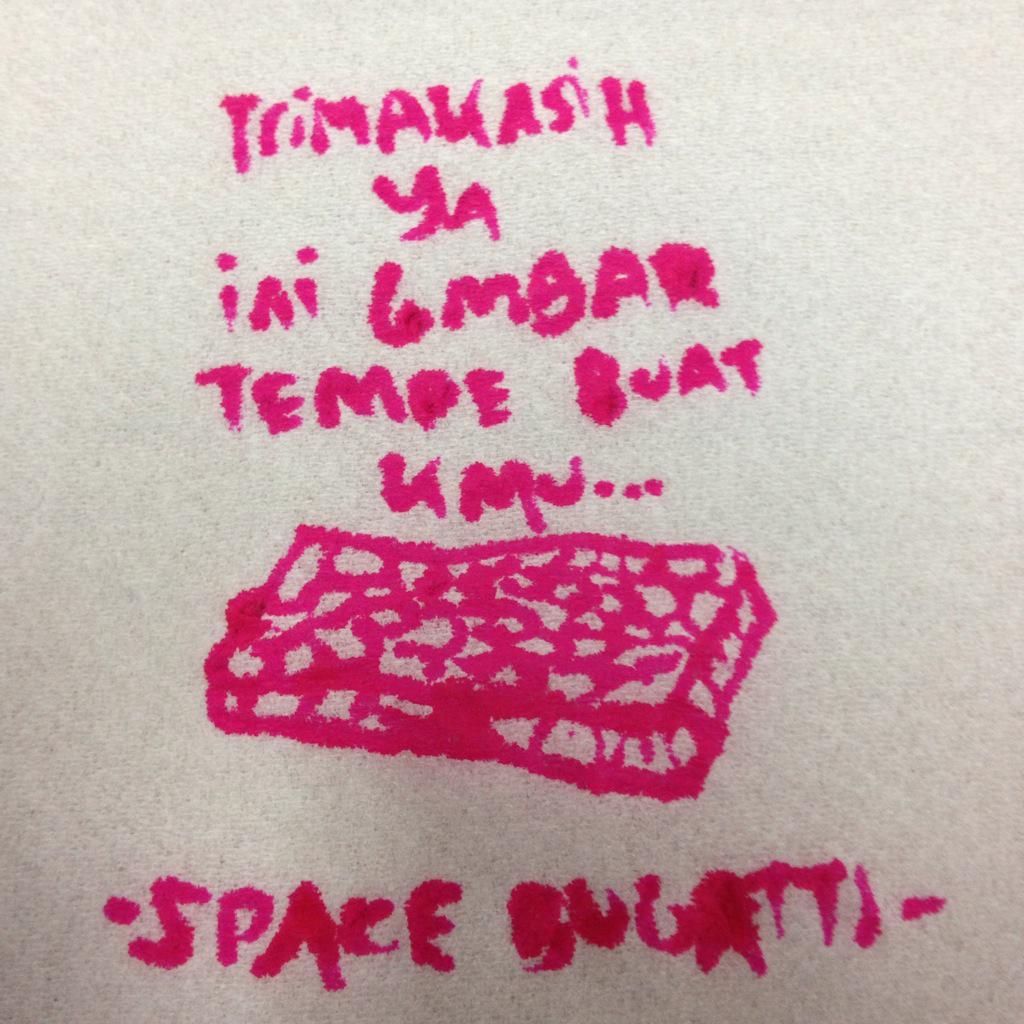 TriMAKASiH
YA
iNi GMBAR
TEMPE BUAT
KMU...
-SPACE BUGATTI-